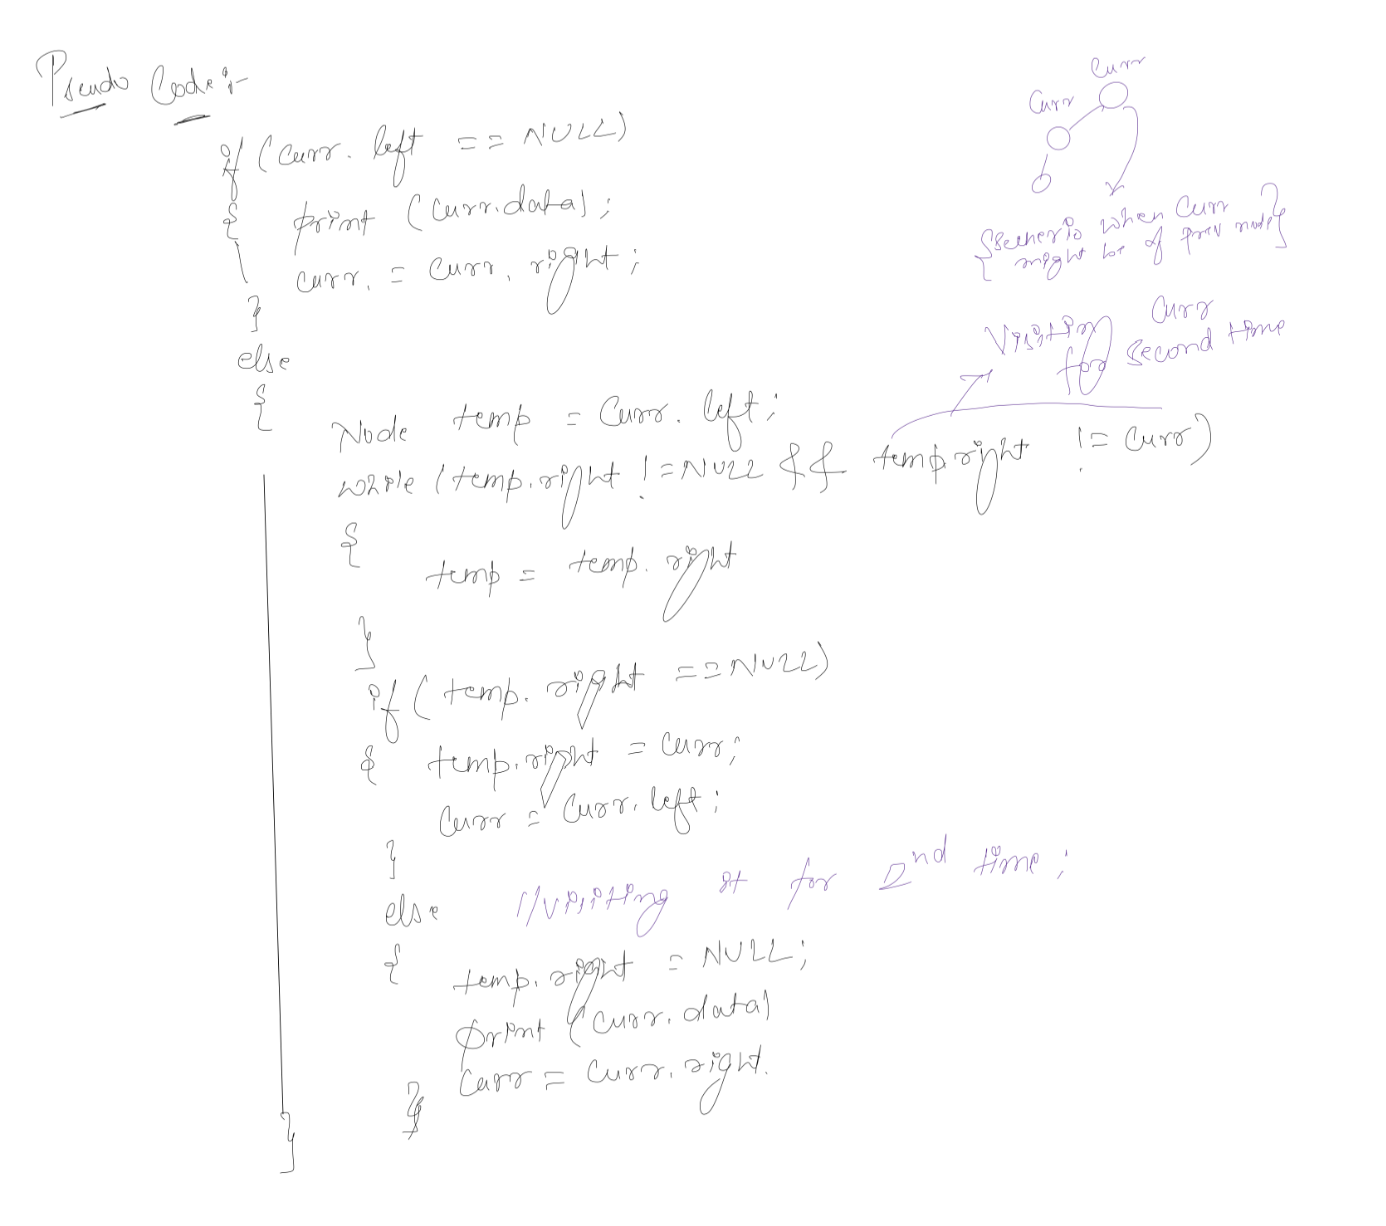 Pseudo Code:-
if (curr.left == NULL)
{ print (curr.data);
curr. = curr.right;
}
else
{
Node temp = Curr.left;
while (temp.right != NULL && temp.right != Curr)
{
temp = temp.right
}
if (temp.right == NULL)
{ temp.right = curr;
Curr = Curr.left;
}
else //visiting it for 2nd time;
{
temp.right = NULL;
print (curr.data)
Curr = Curr.right.
}
}
Curr
Curr
{ when Curr
might be of prev node}
Visiting Curr
for second time